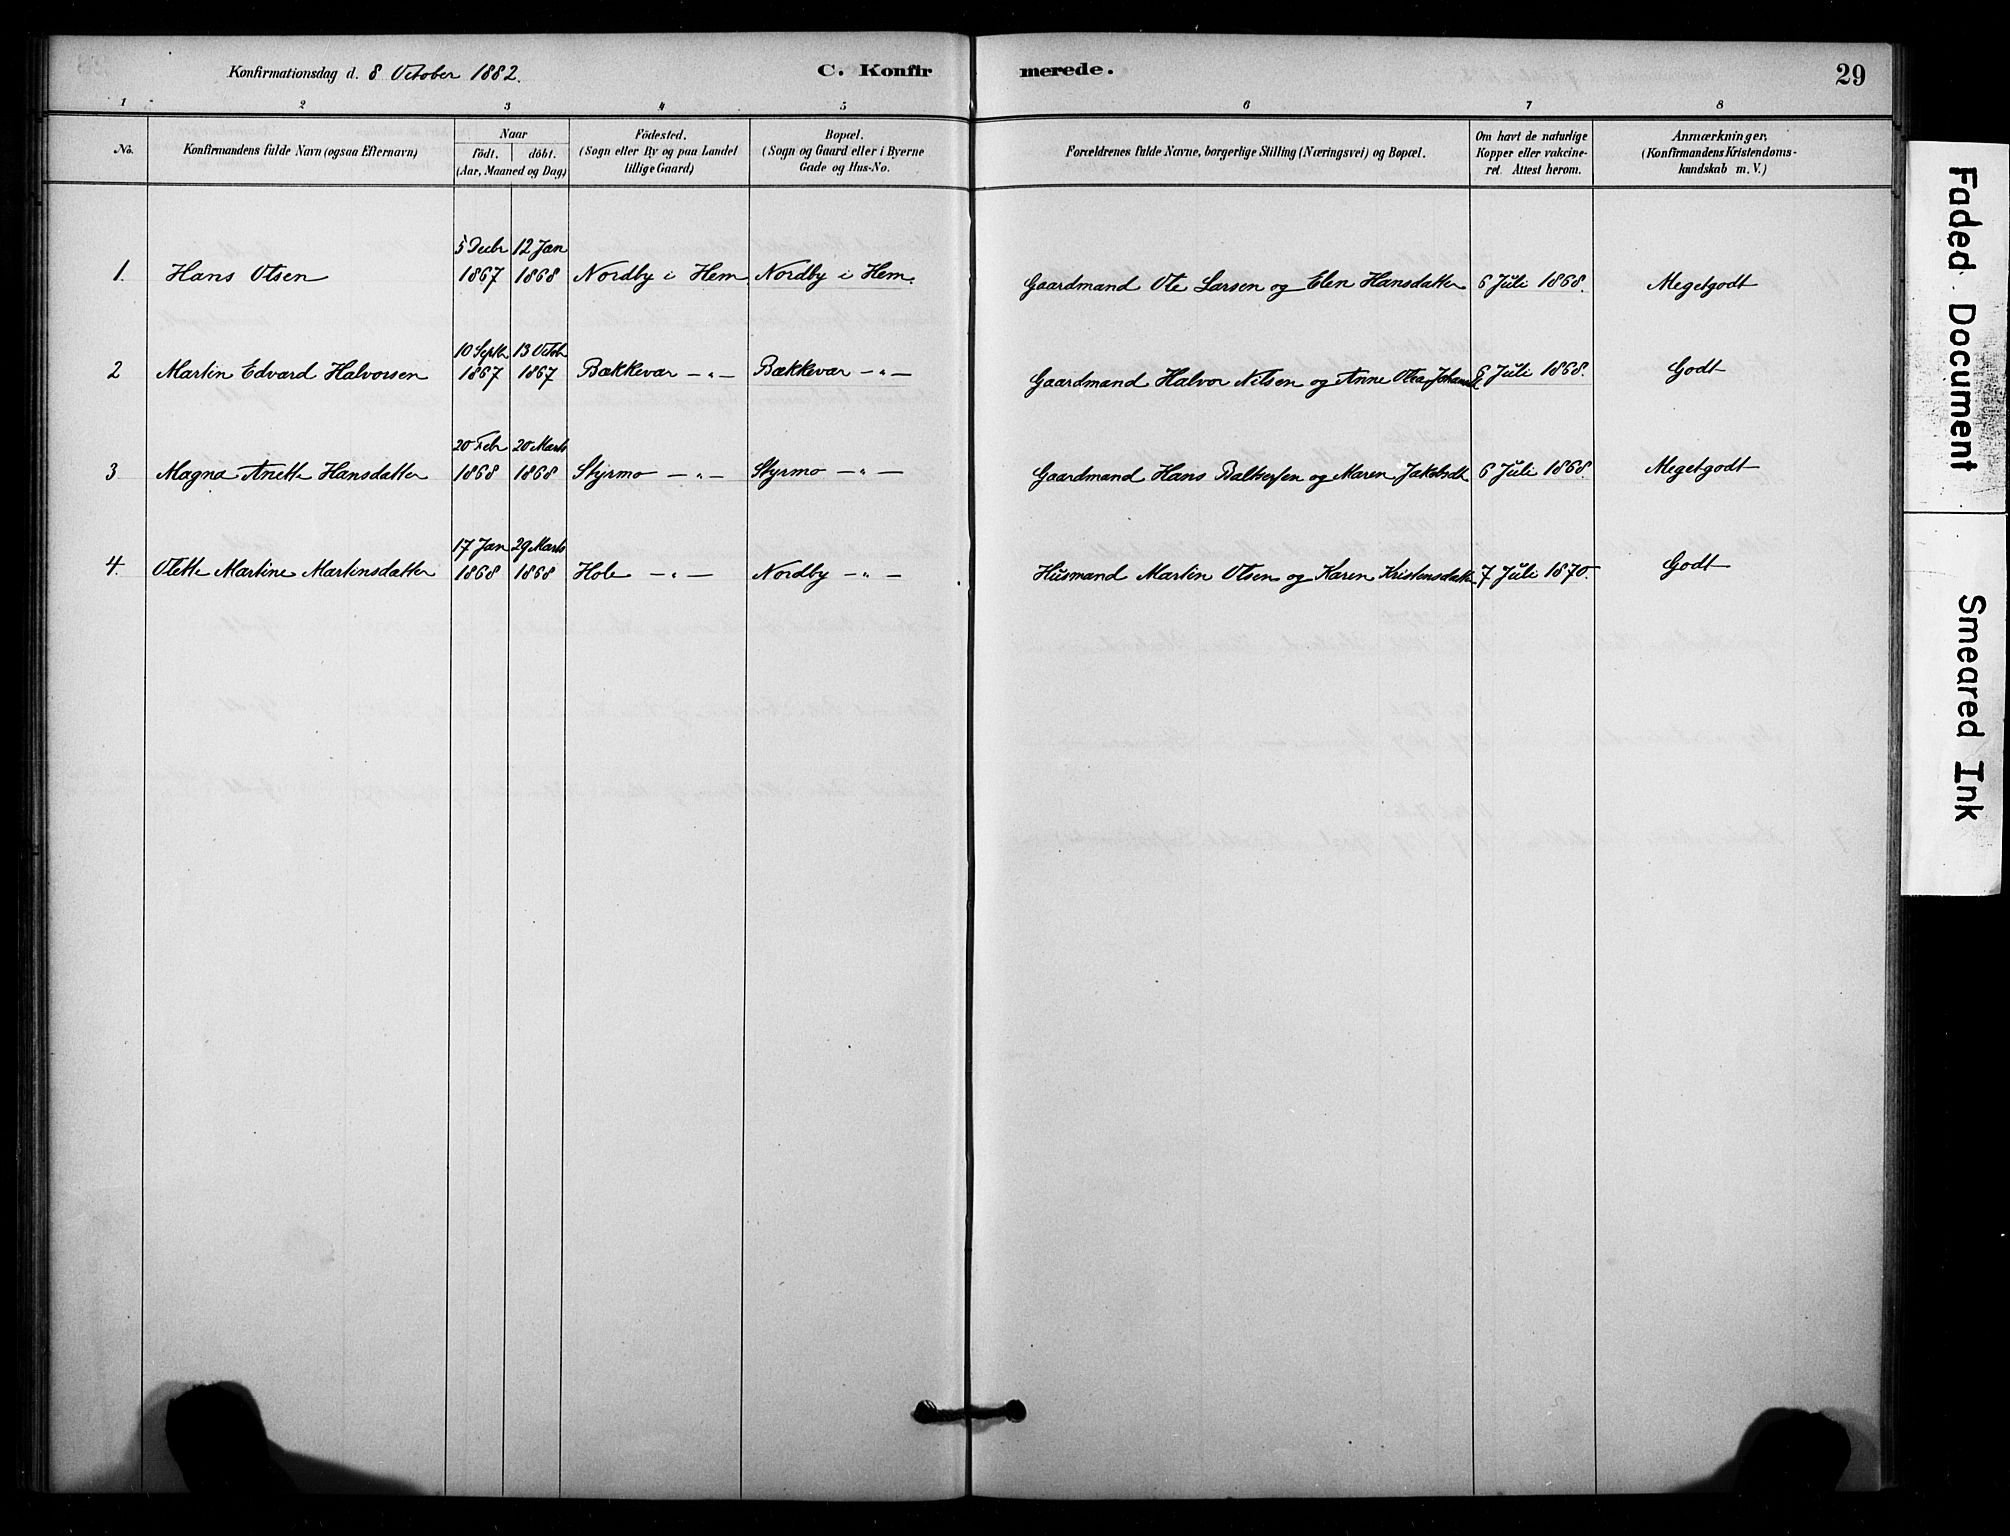 Konfirmationsdag d. 8 October 1882.
C. Konfir
merede.
29
1 2 3 4 5 6 7 8
No.
Konfirmandens fulde Navn (ogsaa Efternavn)
Naar
födt. döbt.
(Aar, Maaned og Dag)
Födested.
(Sogn eller By og paa Landet
tillige Gaard)
Bopæl.
(Sogn og Gaard eller i Byerne
Gade og Hus-No.
Forældrenes fulde Navne, borgerlige Stilling (Næringsvei) og Bopæl.
Om havt de naturlige
Kopper eller vakcine-
ret. Attest herom.
Anmærkninger.
(Konfirmandens Kristendoms-
kundskab m. V.)
5 Decbr 12 Jan
1. Hans Olsen 1867 1868 Nordby i Hem Nordby i Hem. Gaardmand Ole Larsen og Elen Hansdatter 6 Juli 1868. Megetgodt
10 Septbr 13 Octob
2 Martin Edvard Halvorsen 1867 1867 Bækkevar — „ — Bækkevar — „ — Gaardmand Halvor Nilsen og Anne Olea 6 Juli 1868. Godt
20 Febr 20 Marts
3 Magna Anette Hansdatter 1868 1868 Styrmo — „ — Styrmo — „ — Gaardmand Hans Baltsersen og Maren Jakobsdt 6 Juli 1868. Megetgodt
17 Jan 29 Marts
4. Olette Martine Martinsdatter 1868 1868 Hole — „ — Nordby — „ — Husmand Martin Olsen og Karen Kristensdatter 7 Juli 1870. Godt
Faded Document
Smeared Ink